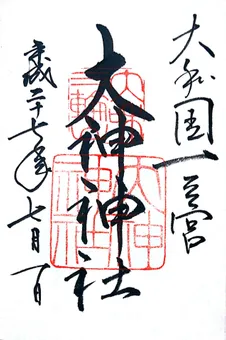 大和国一之宮
大神神社
平成二十七年七月一日
三輪
大神神社